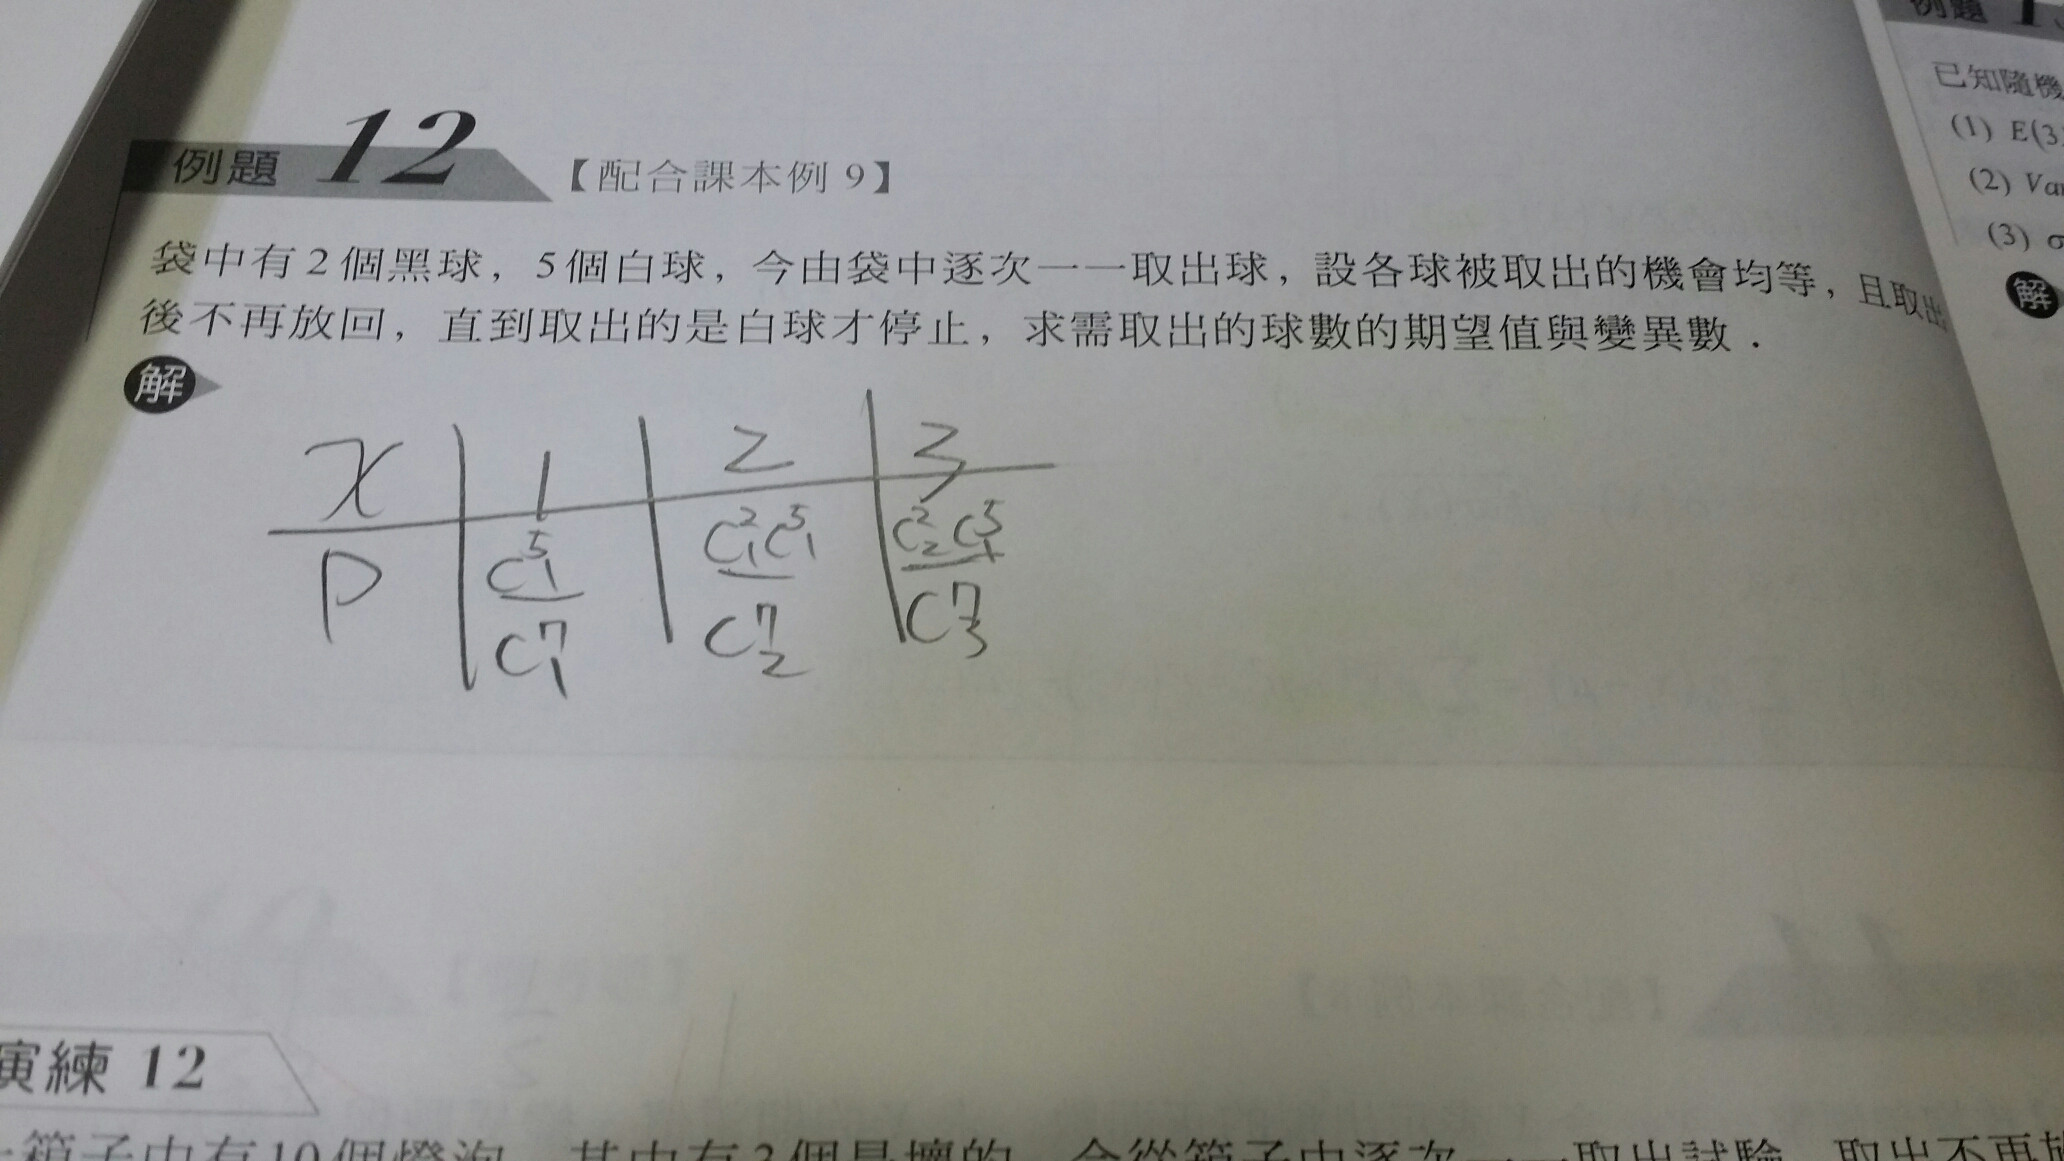 例題 12 【配合課本例 9】
袋中有 2 個黑球，5 個白球，今由袋中逐次一一取出球，設各球被取出的機會均等，且取出
後不再放回，直到取出的是白球才停止，求需取出的球數的期望值與變異數．
解
x 1 2 3
P C⁵₁/C⁷₁ C²₁C⁵₁/C⁷₂ C²₂C⁵₁/C⁷₃
演練 12
箱子中有10個燈泡，其中有3個是壞的，今從箱子中逐次一一取出試驗，取出不再放
例題
已知隨機
(1) E(3
(2) Va
(3) σ
解